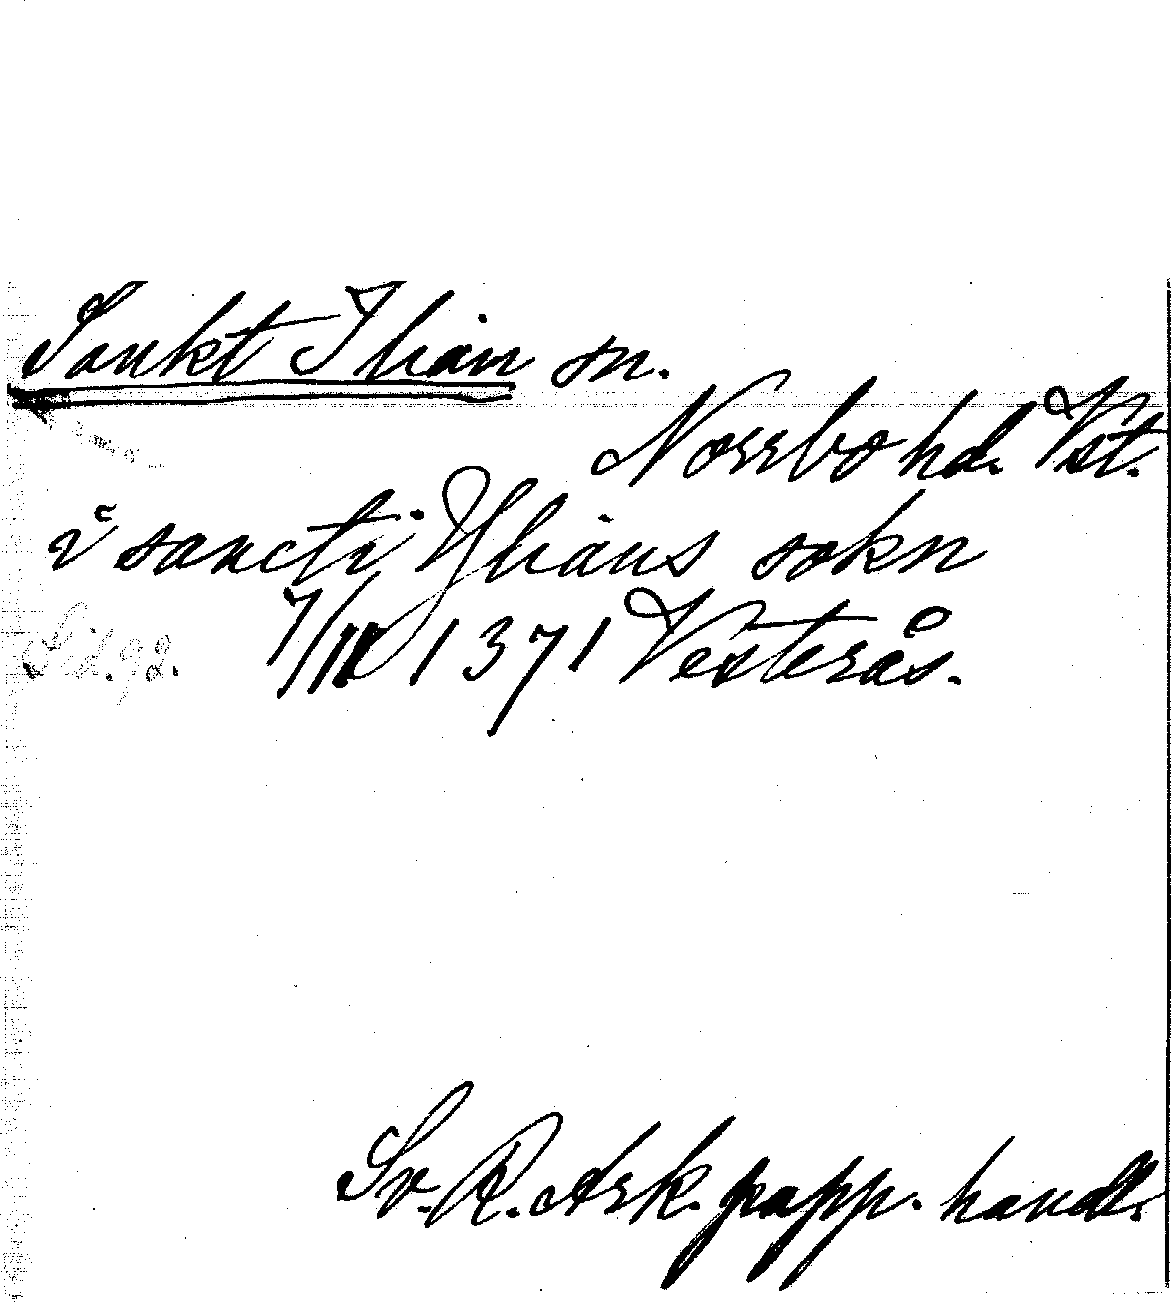 Sankt Ilian sn.
Norrbo hd. Vst.
i sancti Ylians sokn
Sid. 92. 7/II 1371 Vesterås.
Sv. R. Ark. papp. handl.